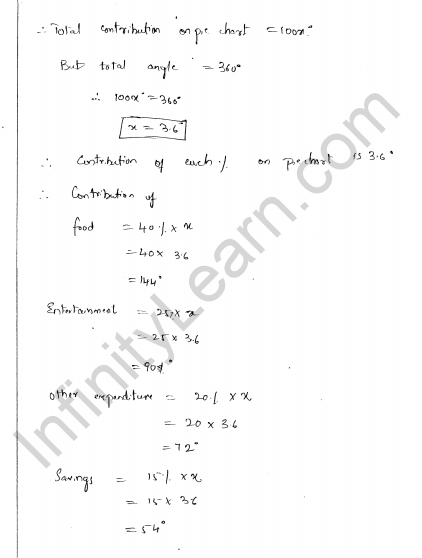 ∴ Total contribution on pie chart = 100x°
But total angle = 360°
∴ 100x° = 360°
x = 3.6°
∴ Contribution of each % on pie chart is 3.6°
∴ Contribution of
food = 40% × x
= 40 × 3.6
= 144°
Entertainment = 25% × x
= 25 × 3.6
= 90°
Other expenditure = 20% × x
= 20 × 3.6
= 72°
Savings = 15% × x
= 15 × 3.6
= 54°
InfinityLearn.com